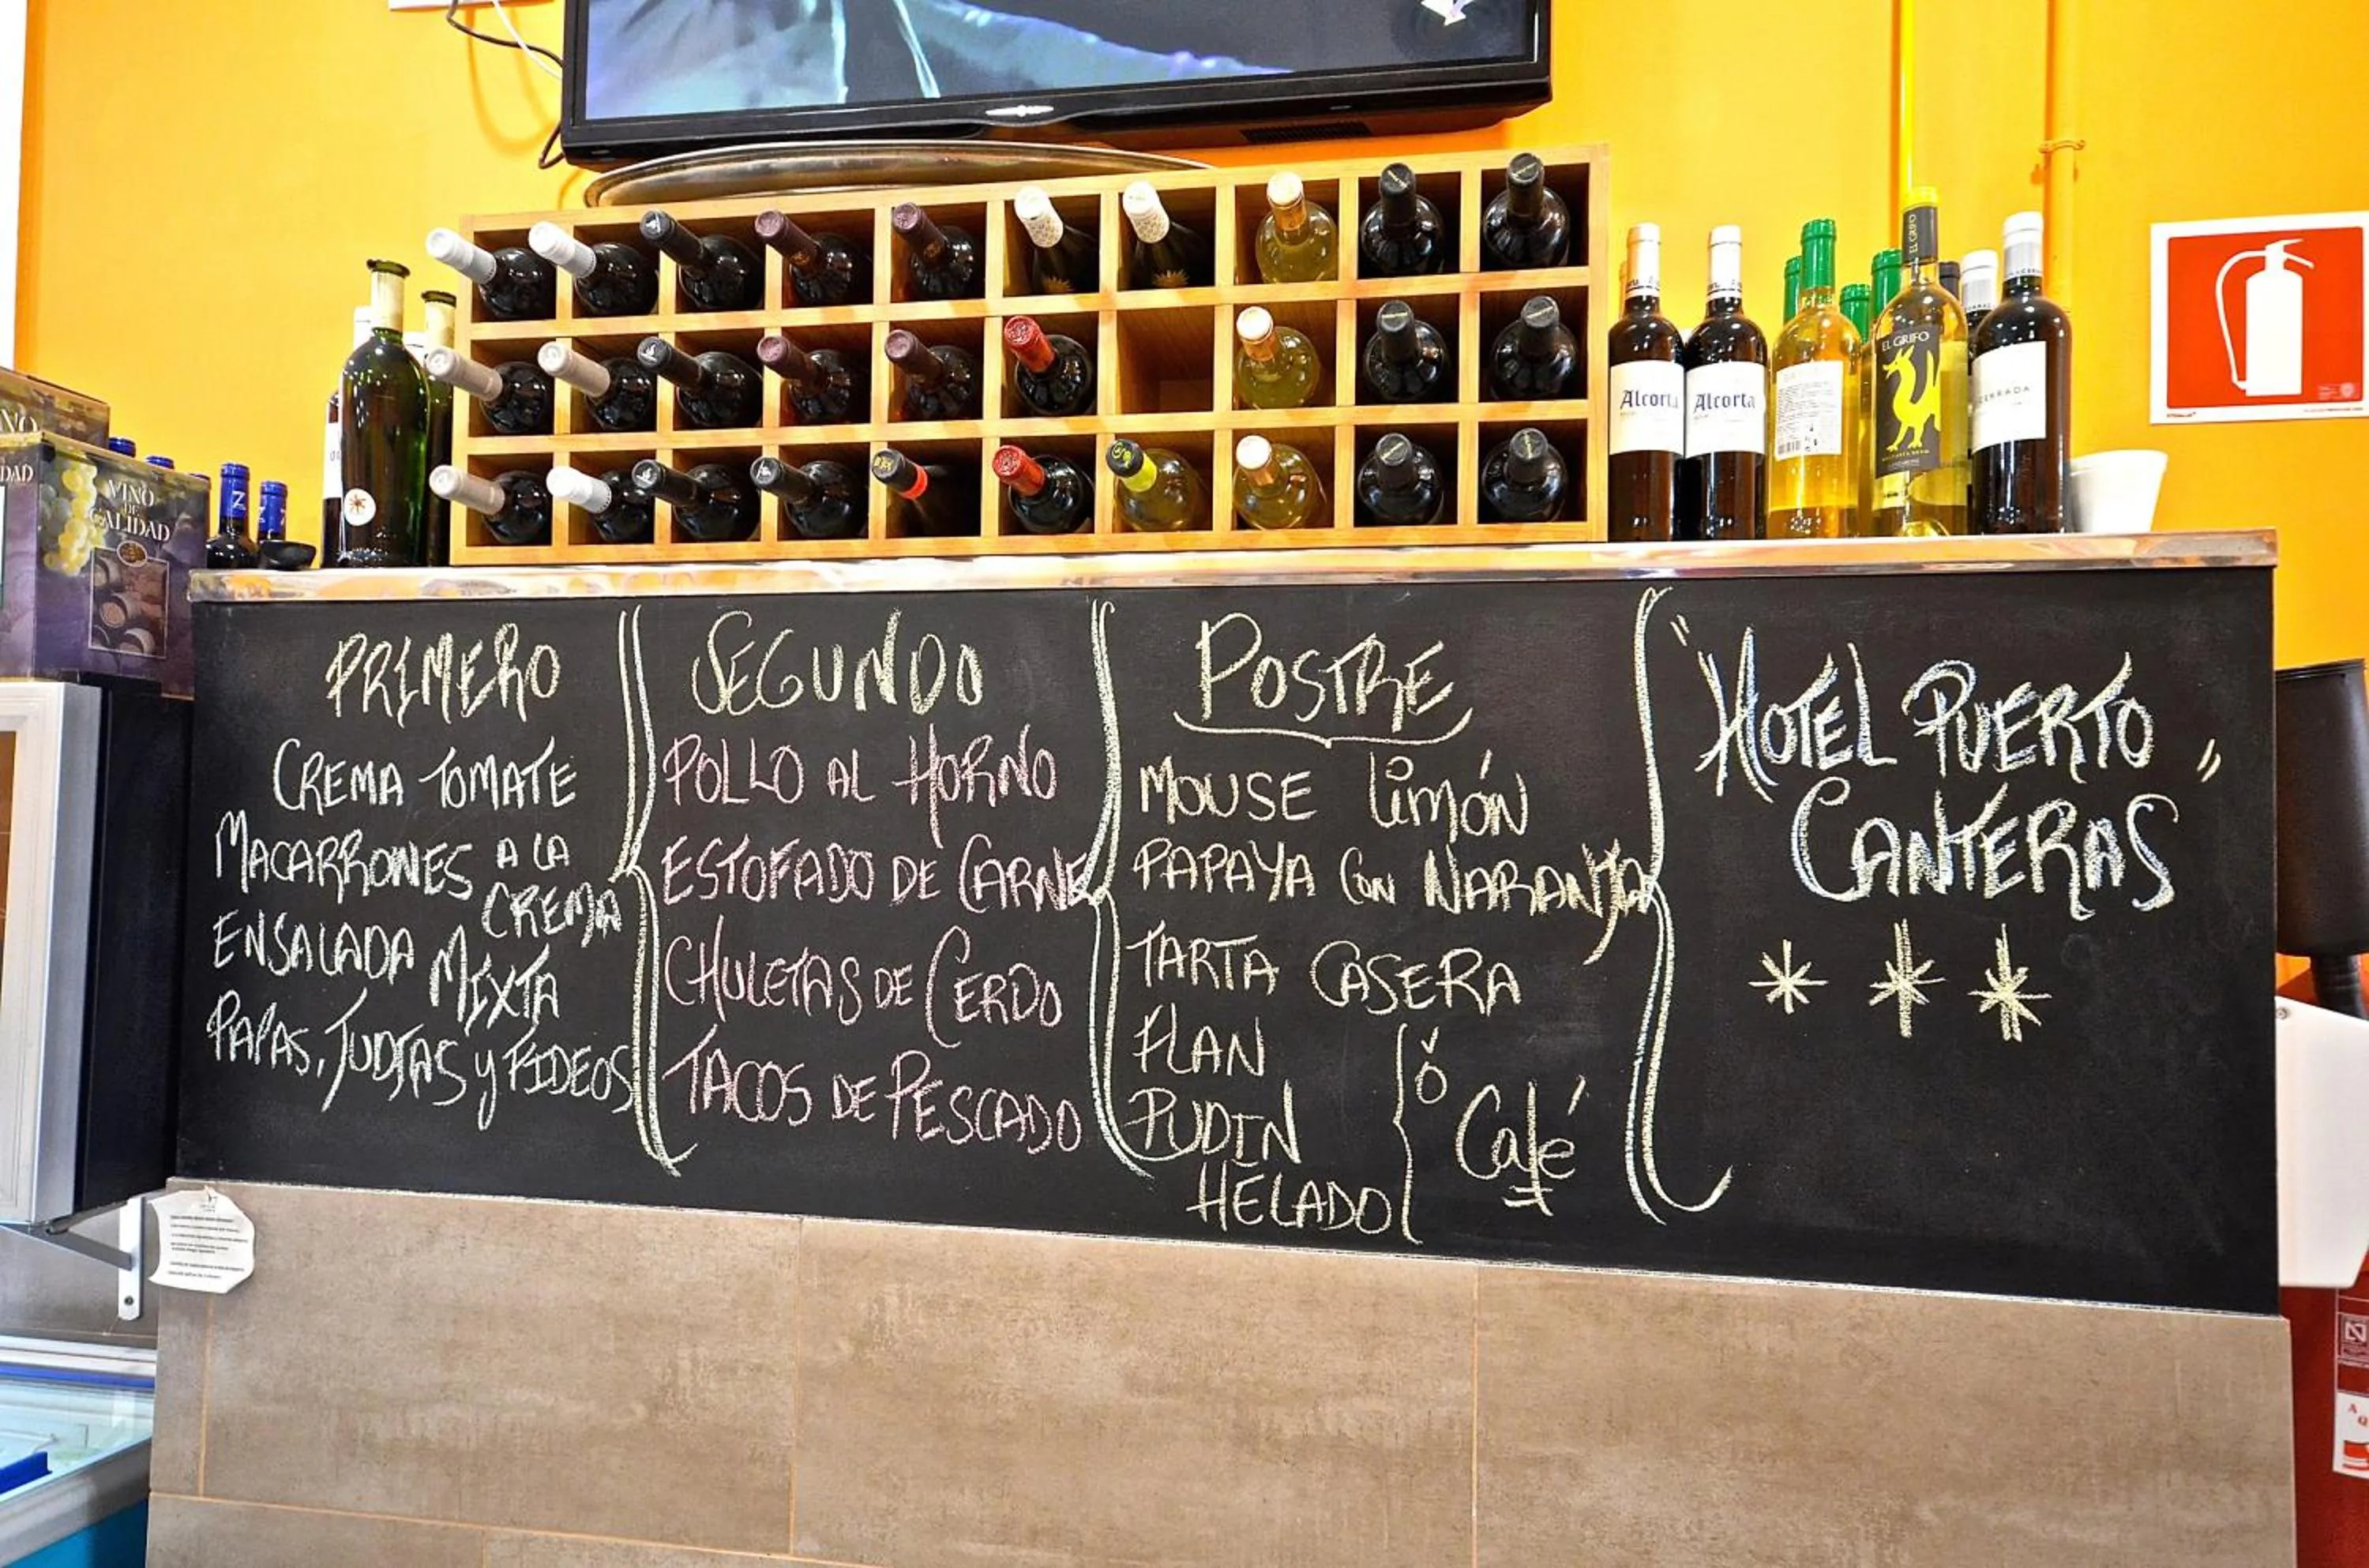 EL GRIFO
EL GRIFO
Alcorta
Alcorta
VINO
DE
CALIDAD
Z
PRIMERO
CREMA TOMATE
MACARRONES A LA
CREMA
ENSALADA MIXTA
PAPAS, JUDIAS y FIDEOS
SEGUNDO
POLLO AL HORNO
ESTOFADO DE CARNE
CHULETAS DE CERDO
TACOS DE PESCADO
POSTRE
MOUSE limón
PAPAYA CON NARANJA
TARTA CASERA
FLAN
PUDIN
HELADO
ó
Café
"HOTEL PUERTO
CANTERAS"
* * *